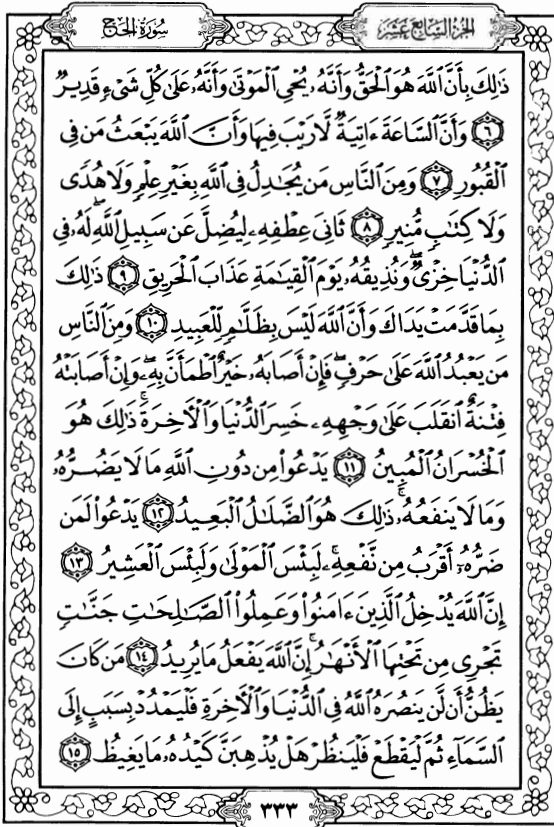 سُورَةُ الحَجِّ
الجزء السَّابِع عَشَر
ذَٰلِكَ بِأَنَّ ٱللَّهَ هُوَ ٱلْحَقُّ وَأَنَّهُۥ يُحْىِ ٱلْمَوْتَىٰ وَأَنَّهُۥ عَلَىٰ كُلِّ شَىْءٍ قَدِيرٌ
٦ وَأَنَّ ٱلسَّاعَةَ ءَاتِيَةٌ لَّا رَيْبَ فِيهَا وَأَنَّ ٱللَّهَ يَبْعَثُ مَن فِى
ٱلْقُبُورِ ٧ وَمِنَ ٱلنَّاسِ مَن يُجَٰدِلُ فِى ٱللَّهِ بِغَيْرِ عِلْمٍ وَلَا هُدًى
وَلَا كِتَٰبٍ مُّنِيرٍ ٨ ثَانِىَ عِطْفِهِۦ لِيُضِلَّ عَن سَبِيلِ ٱللَّهِ ۖ لَهُۥ فِى
ٱلدُّنْيَا خِزْىٌ ۖ وَنُذِيقُهُۥ يَوْمَ ٱلْقِيَٰمَةِ عَذَابَ ٱلْحَرِيقِ ٩ ذَٰلِكَ
بِمَا قَدَّمَتْ يَدَاكَ وَأَنَّ ٱللَّهَ لَيْسَ بِظَلَّٰمٍ لِّلْعَبِيدِ ١٠ وَمِنَ ٱلنَّاسِ
مَن يَعْبُدُ ٱللَّهَ عَلَىٰ حَرْفٍ ۖ فَإِنْ أَصَابَهُۥ خَيْرٌ ٱطْمَأَنَّ بِهِۦ ۖ وَإِنْ أَصَابَتْهُ
فِتْنَةٌ ٱنقَلَبَ عَلَىٰ وَجْهِهِۦ خَسِرَ ٱلدُّنْيَا وَٱلْأَخِرَةَ ۚ ذَٰلِكَ هُوَ
ٱلْخُسْرَانُ ٱلْمُبِينُ ١١ يَدْعُوا۟ مِن دُونِ ٱللَّهِ مَا لَا يَضُرُّهُۥ
وَمَا لَا يَنفَعُهُۥ ۚ ذَٰلِكَ هُوَ ٱلضَّلَٰلُ ٱلْبَعِيدُ ١٢ يَدْعُوا۟ لَمَن
ضَرُّهُۥٓ أَقْرَبُ مِن نَّفْعِهِۦ ۚ لَبِئْسَ ٱلْمَوْلَىٰ وَلَبِئْسَ ٱلْعَشِيرُ ١٣
إِنَّ ٱللَّهَ يُدْخِلُ ٱلَّذِينَ ءَامَنُوا۟ وَعَمِلُوا۟ ٱلصَّٰلِحَٰتِ جَنَّٰتٍ
تَجْرِى مِن تَحْتِهَا ٱلْأَنْهَٰرُ ۚ إِنَّ ٱللَّهَ يَفْعَلُ مَا يُرِيدُ ١٤ مَن كَانَ
يَظُنُّ أَن لَّن يَنصُرَهُ ٱللَّهُ فِى ٱلدُّنْيَا وَٱلْأَخِرَةِ فَلْيَمْدُدْ بِسَبَبٍ إِلَى
ٱلسَّمَآءِ ثُمَّ لْيَقْطَعْ فَلْيَنظُرْ هَلْ يُذْهِبَنَّ كَيْدُهُۥ مَا يَغِيظُ ١٥
٣٣٣